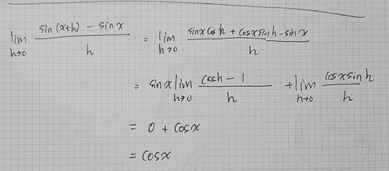 lim h→0 (sin(x+h) - sinx)/h = lim h→0 (sinxcosh + cosxsinh - sinx)/h
= sinx lim h→0 (cosh - 1)/h + lim h→0 (cosxsinh)/h
= 0 + cosx
= cosx